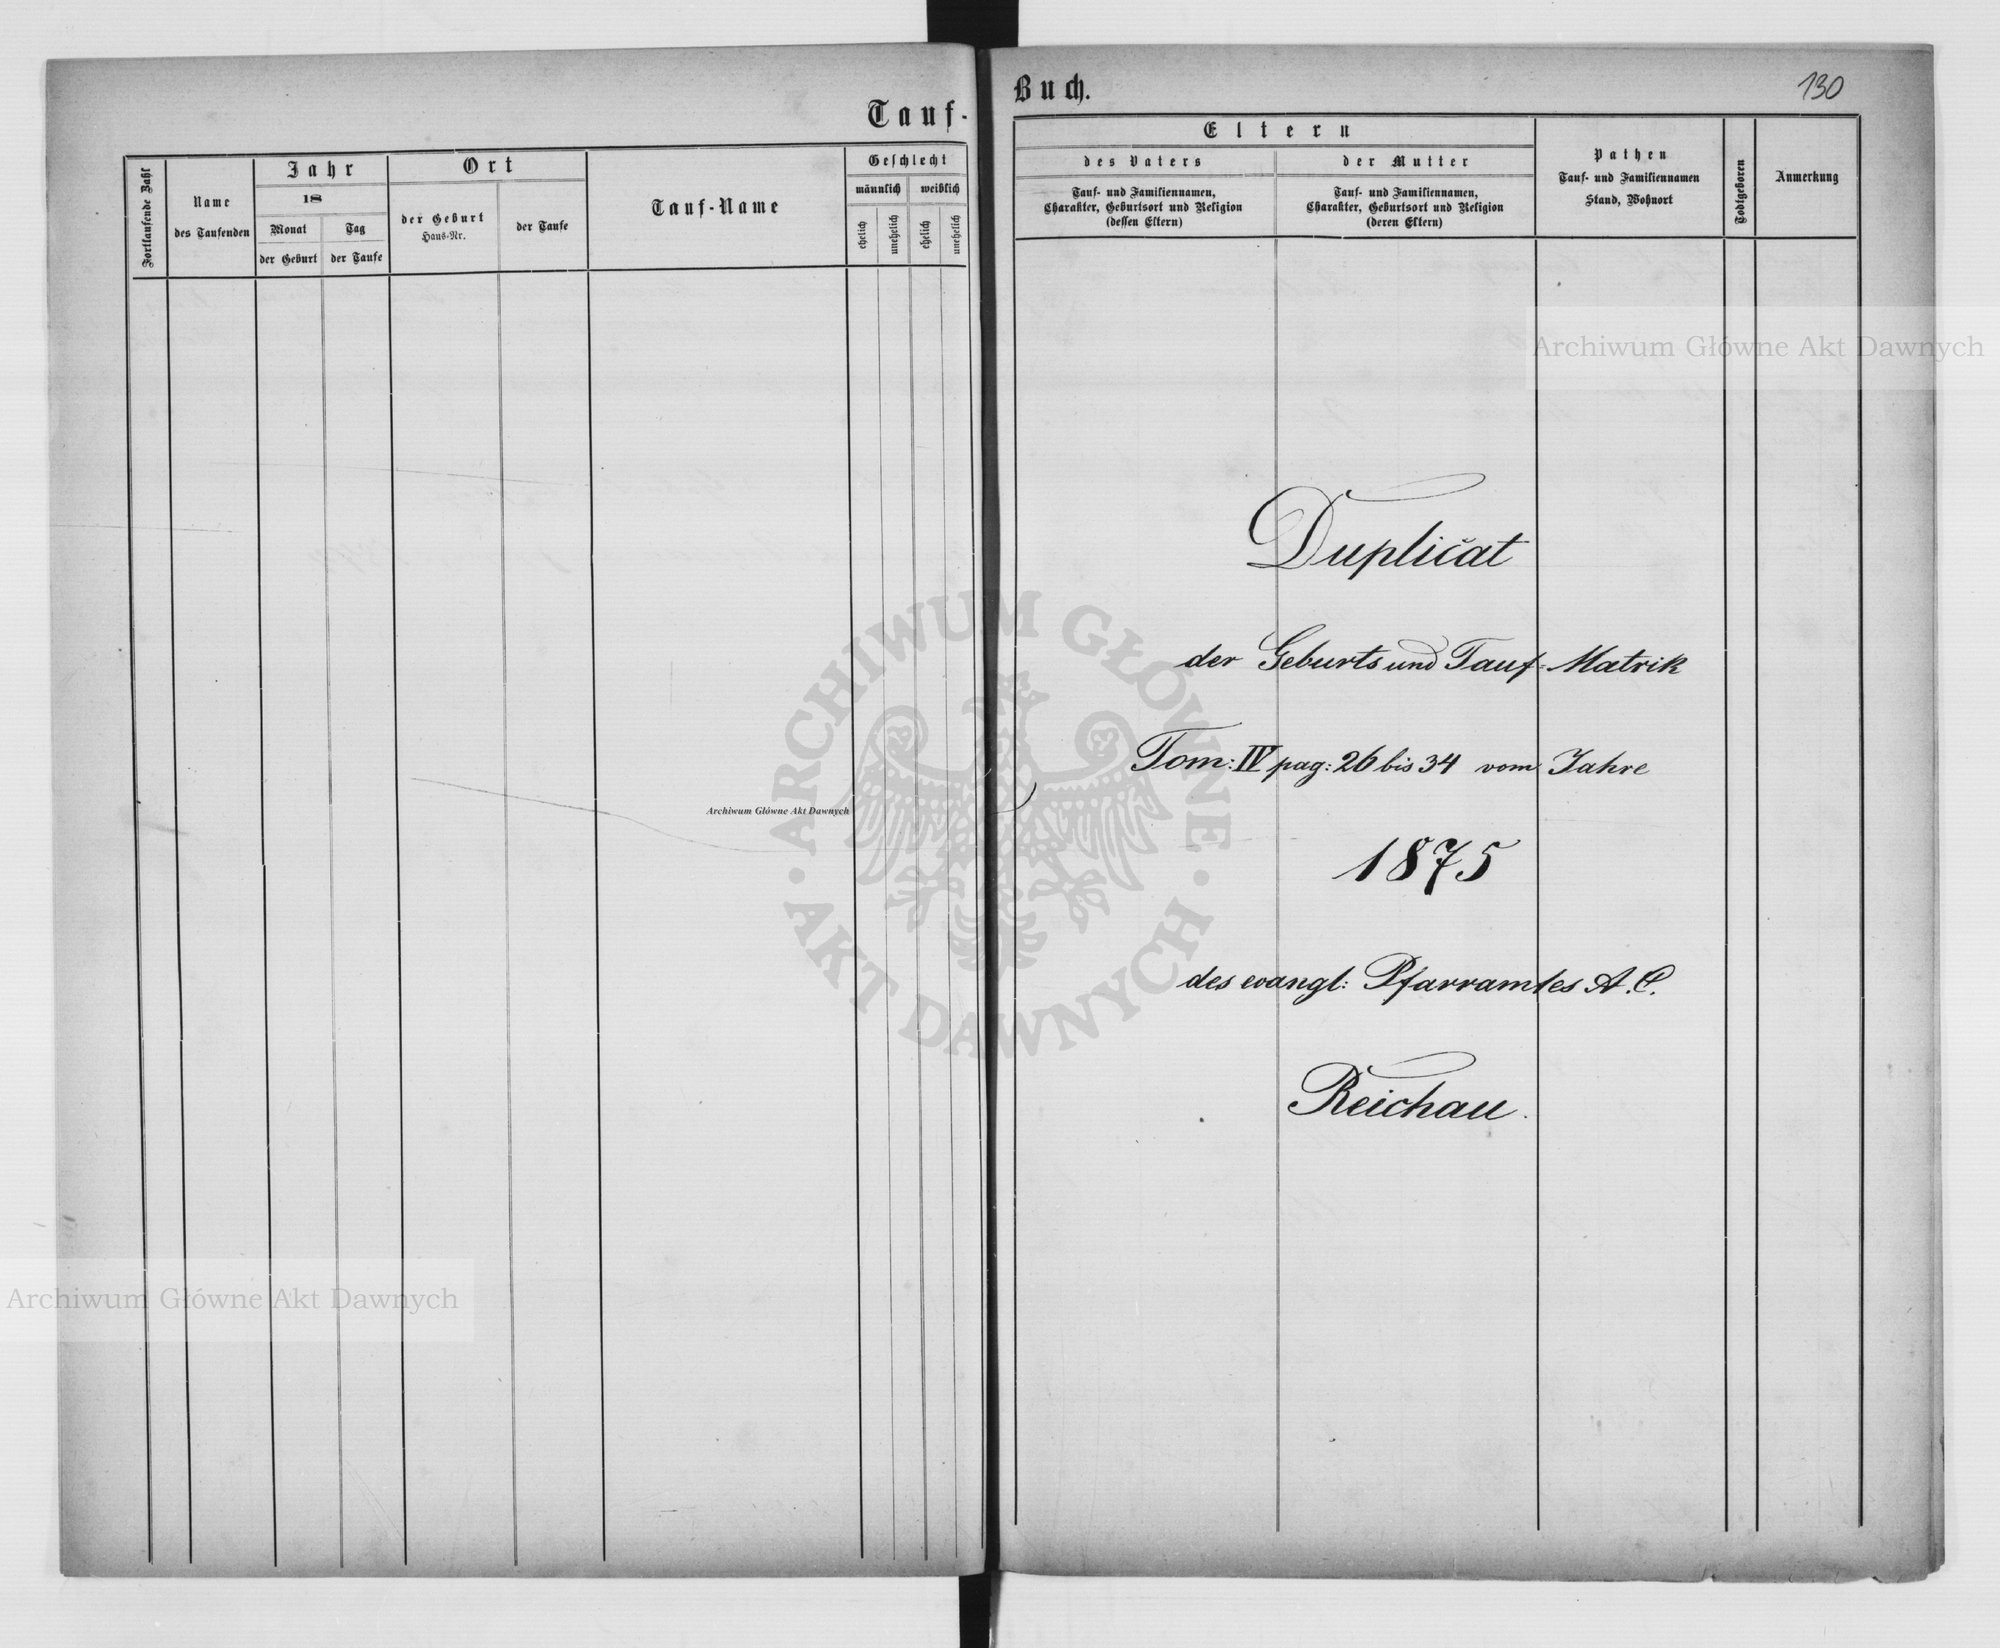 Tauf-
Fortlaufende Zahl
Name
des Taufenden
Jahr
18
Monat
Tag
der Geburt
der Taufe
Ort
der Geburt
Haus-Nr.
der Taufe
Tauf-Name
Geschlecht
männlich
weiblich
ehelich
unehelich
ehelich
unehelich
Buch.
130
Eltern
des Vaters
Tauf- und Familiennamen,
Charakter, Geburtsort und Religion
(dessen Eltern)
der Mutter
Tauf- und Familiennamen,
Charakter, Geburtsort und Religion
(deren Eltern)
Pathen
Tauf- und Familiennamen
Stand, Wohnort
Todtgeboren
Anmerkung
Archiwum Główne Akt Dawnych
Duplicat
der Geburts und Tauf-Matrik
Tom: IV pag: 26 bis 34 vom Jahre
1875
des evangl: Pfarramtes A.C.
Reichau.
ARCHIWUM GŁÓWNE
AKT DAWNYCH
Archiwum Główne Akt Dawnych
Archiwum Główne Akt Dawnych